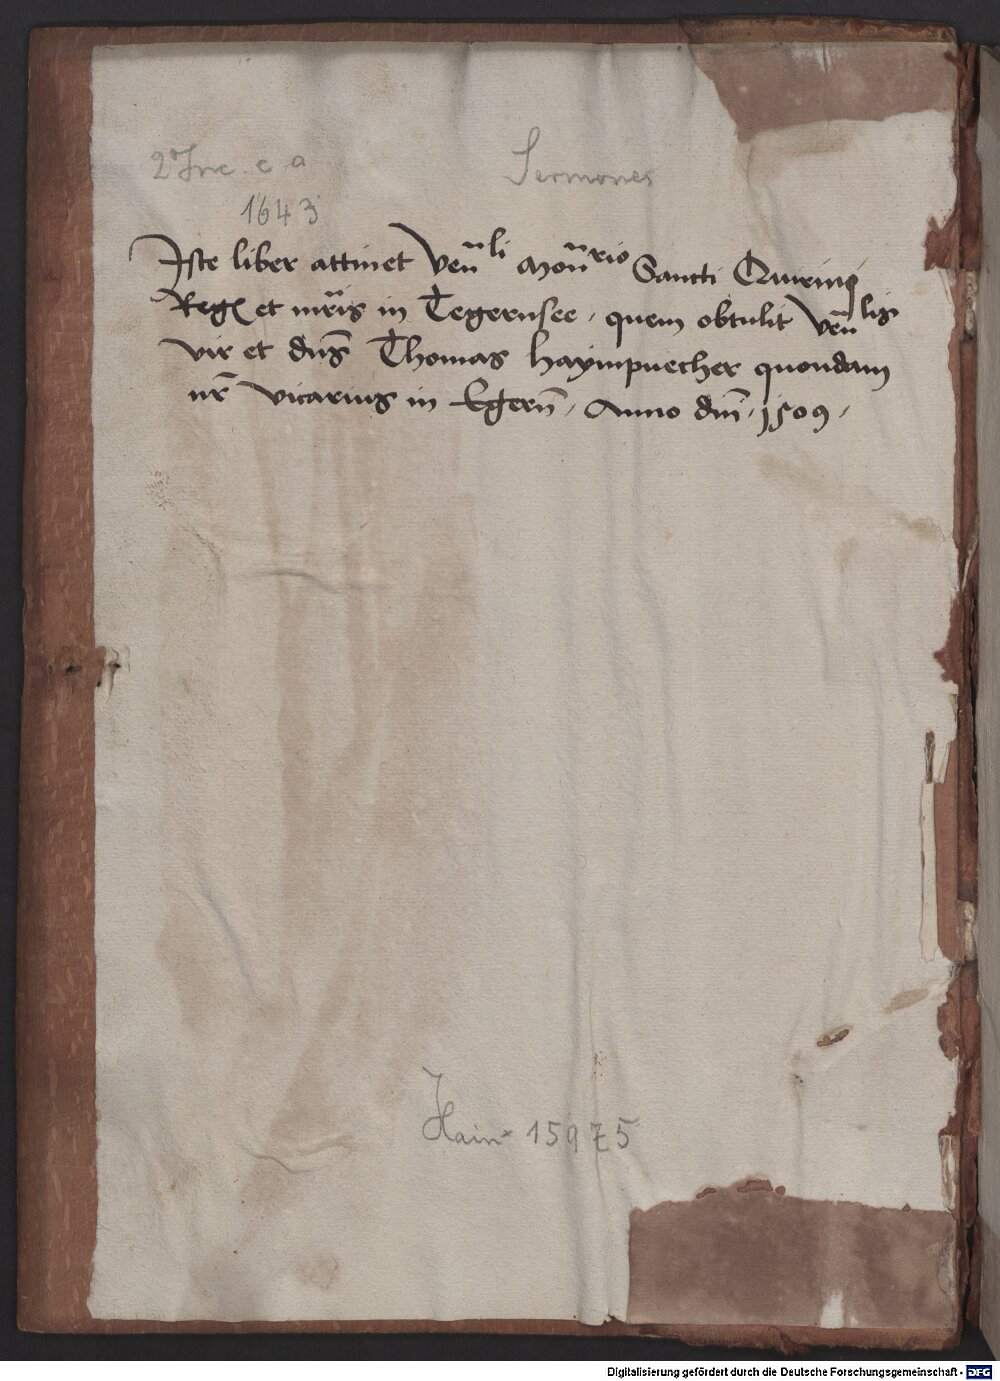 2° Inc. c. a.
Sermones
1643
Iste liber attinet Ven̄li Mon̄rio Sancti Quirinꝯ
Regꝭ et mr̄is in Tegernsee, quem obtulit Ven̄lis
vir et dn̄s Thomas Haympuecher quondam
nr̄ vicarius in Egern̄, Anno dm̄, 1509,
Hain* 15975
Digitalisierung gefördert durch die Deutsche Forschungsgemeinschaft - DFG